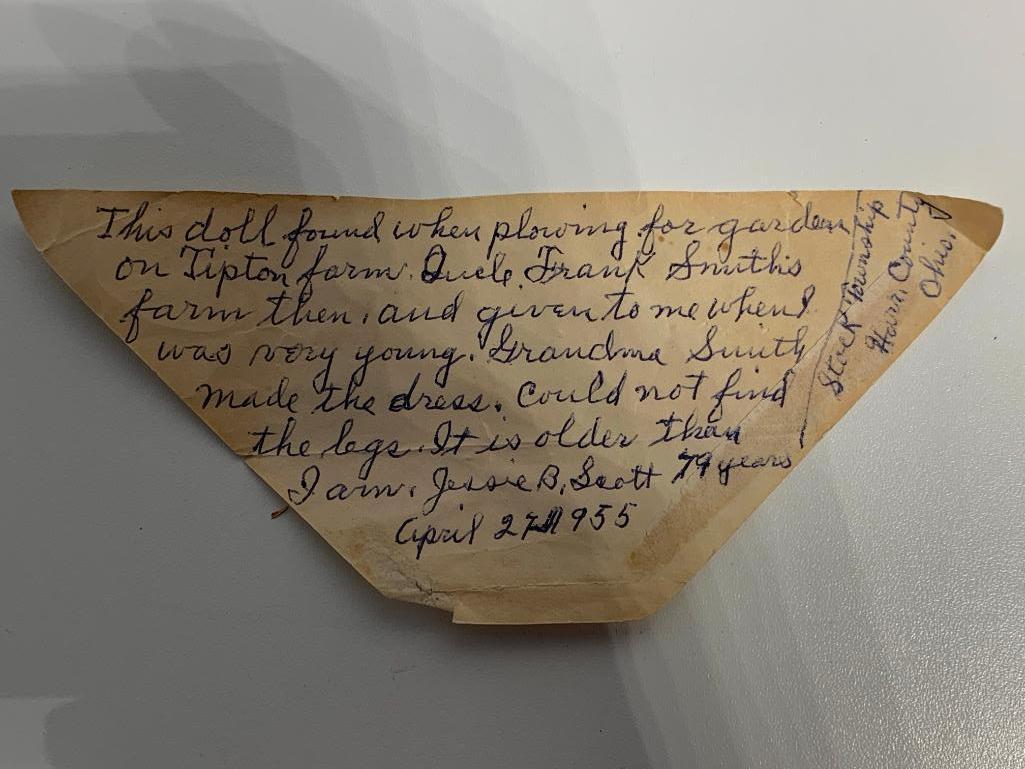 This doll found when plowing for garden
on Tipton farm. Uncle Frank Smith's
farm then, and given to me when I
was very young. Grandma Smith
made the dress. Could not find
the legs. It is older than
I am. Jessie B. Scott 79 years
April 27 1955
Stock Township
Harr. County
Ohio.